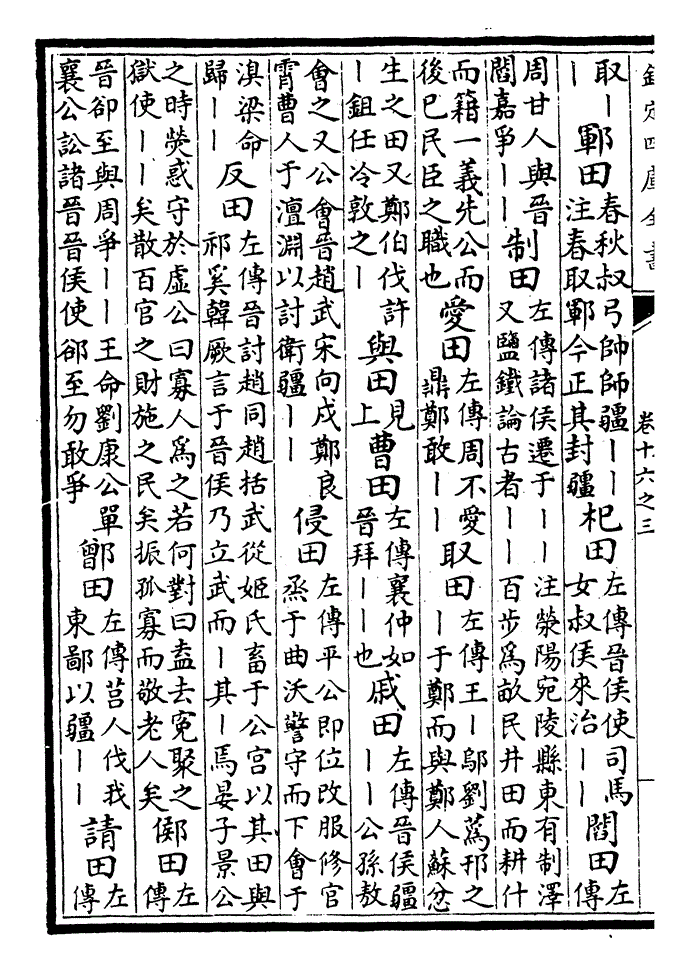 欽定四庫全書
卷十六之三
取｜
｜
鄆田
春秋叔弓帥師疆｜｜
注春取鄆今正其封疆
杞田
左傳晉侯使司馬
女叔侯來治｜｜
閻田
左
傳
周甘人與晉
閻嘉爭｜｜
制田
左傳諸侯遷于｜｜注滎陽宛陵縣東有制澤
又鹽鐵論古者｜｜百步爲畝民井田而耕什
而籍一義先公而
後巳民臣之職也
愛田
左傳周不愛
鼎鄭敢｜｜
取田
左傳王｜鄔劉蒍邘之
｜于鄭而與鄭人蘇忿
生之田又鄭伯伐許
｜鉏任冷敦之｜
與田
見
上
曹田
左傳襄仲如
晉拜｜｜也
戚田
左傳晉侯疆
｜｜公孫敖
會之又公會晉趙武宋向戌鄭良
霄曹人于澶淵以討衛疆｜｜
侵田
左傳平公即位改服修官
烝于曲沃警守而下會于
溴梁命
歸｜｜
反田
左傳晉討趙同趙括武從姬氏畜于公宮以其田與
祁奚韓厥言于晉侯乃立武而｜其｜焉晏子景公
之時熒惑守於虛公曰寡人爲之若何對曰盍去寃聚之
獄使｜｜矣散百官之財施之民矣振孤寡而敬老人矣
鄇田
左
傳
晉郤至與周爭｜｜王命劉康公單
襄公訟諸晉晉侯使郤至勿敢爭
鄫田
左傳莒人伐我
東鄙以疆｜｜
請田
左
傳